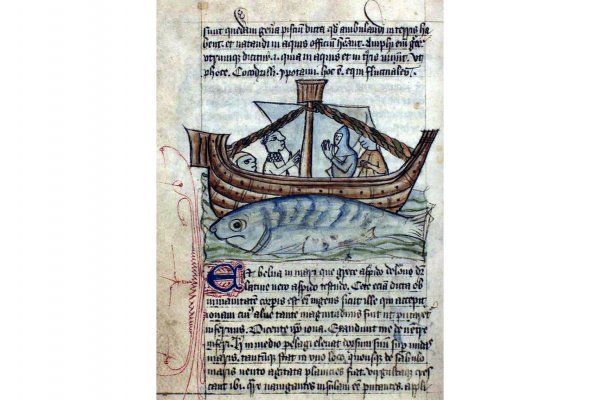 sunt quedam geña piscium dicta qđ ambulandi in terris ha
bent. et natandi in aquis officium hñt. Amphi em̃ gre
utrumque dicitur .i. quia in aquis et in t̃ris uiuunt. Vt
phoce. Cocodrilli. ypotami. hoc ẽ. equi fluctuales.
Est belua in mari que grece aspido delone dr̃
latine uero aspido testudo. Cete eciam dicta ob
inmanitatem corpis est em̃ ingens sicut ille qui excepit
ionam cuiꝰ aluꝰ tante magnitudinis fuit ut putaret̃
infernus. Dicente ip̃o iona. Exaudiuit me de uentre
inferi. in medio pelagi eleuat dorsum suum sup̃ undas
maris. tantumque stat in uno loco, quousque de sabulo
maris uento agitata planicies fiat. uirgultaque cres
cant ibi. naui­gantes insulam eẽ putantes. appli